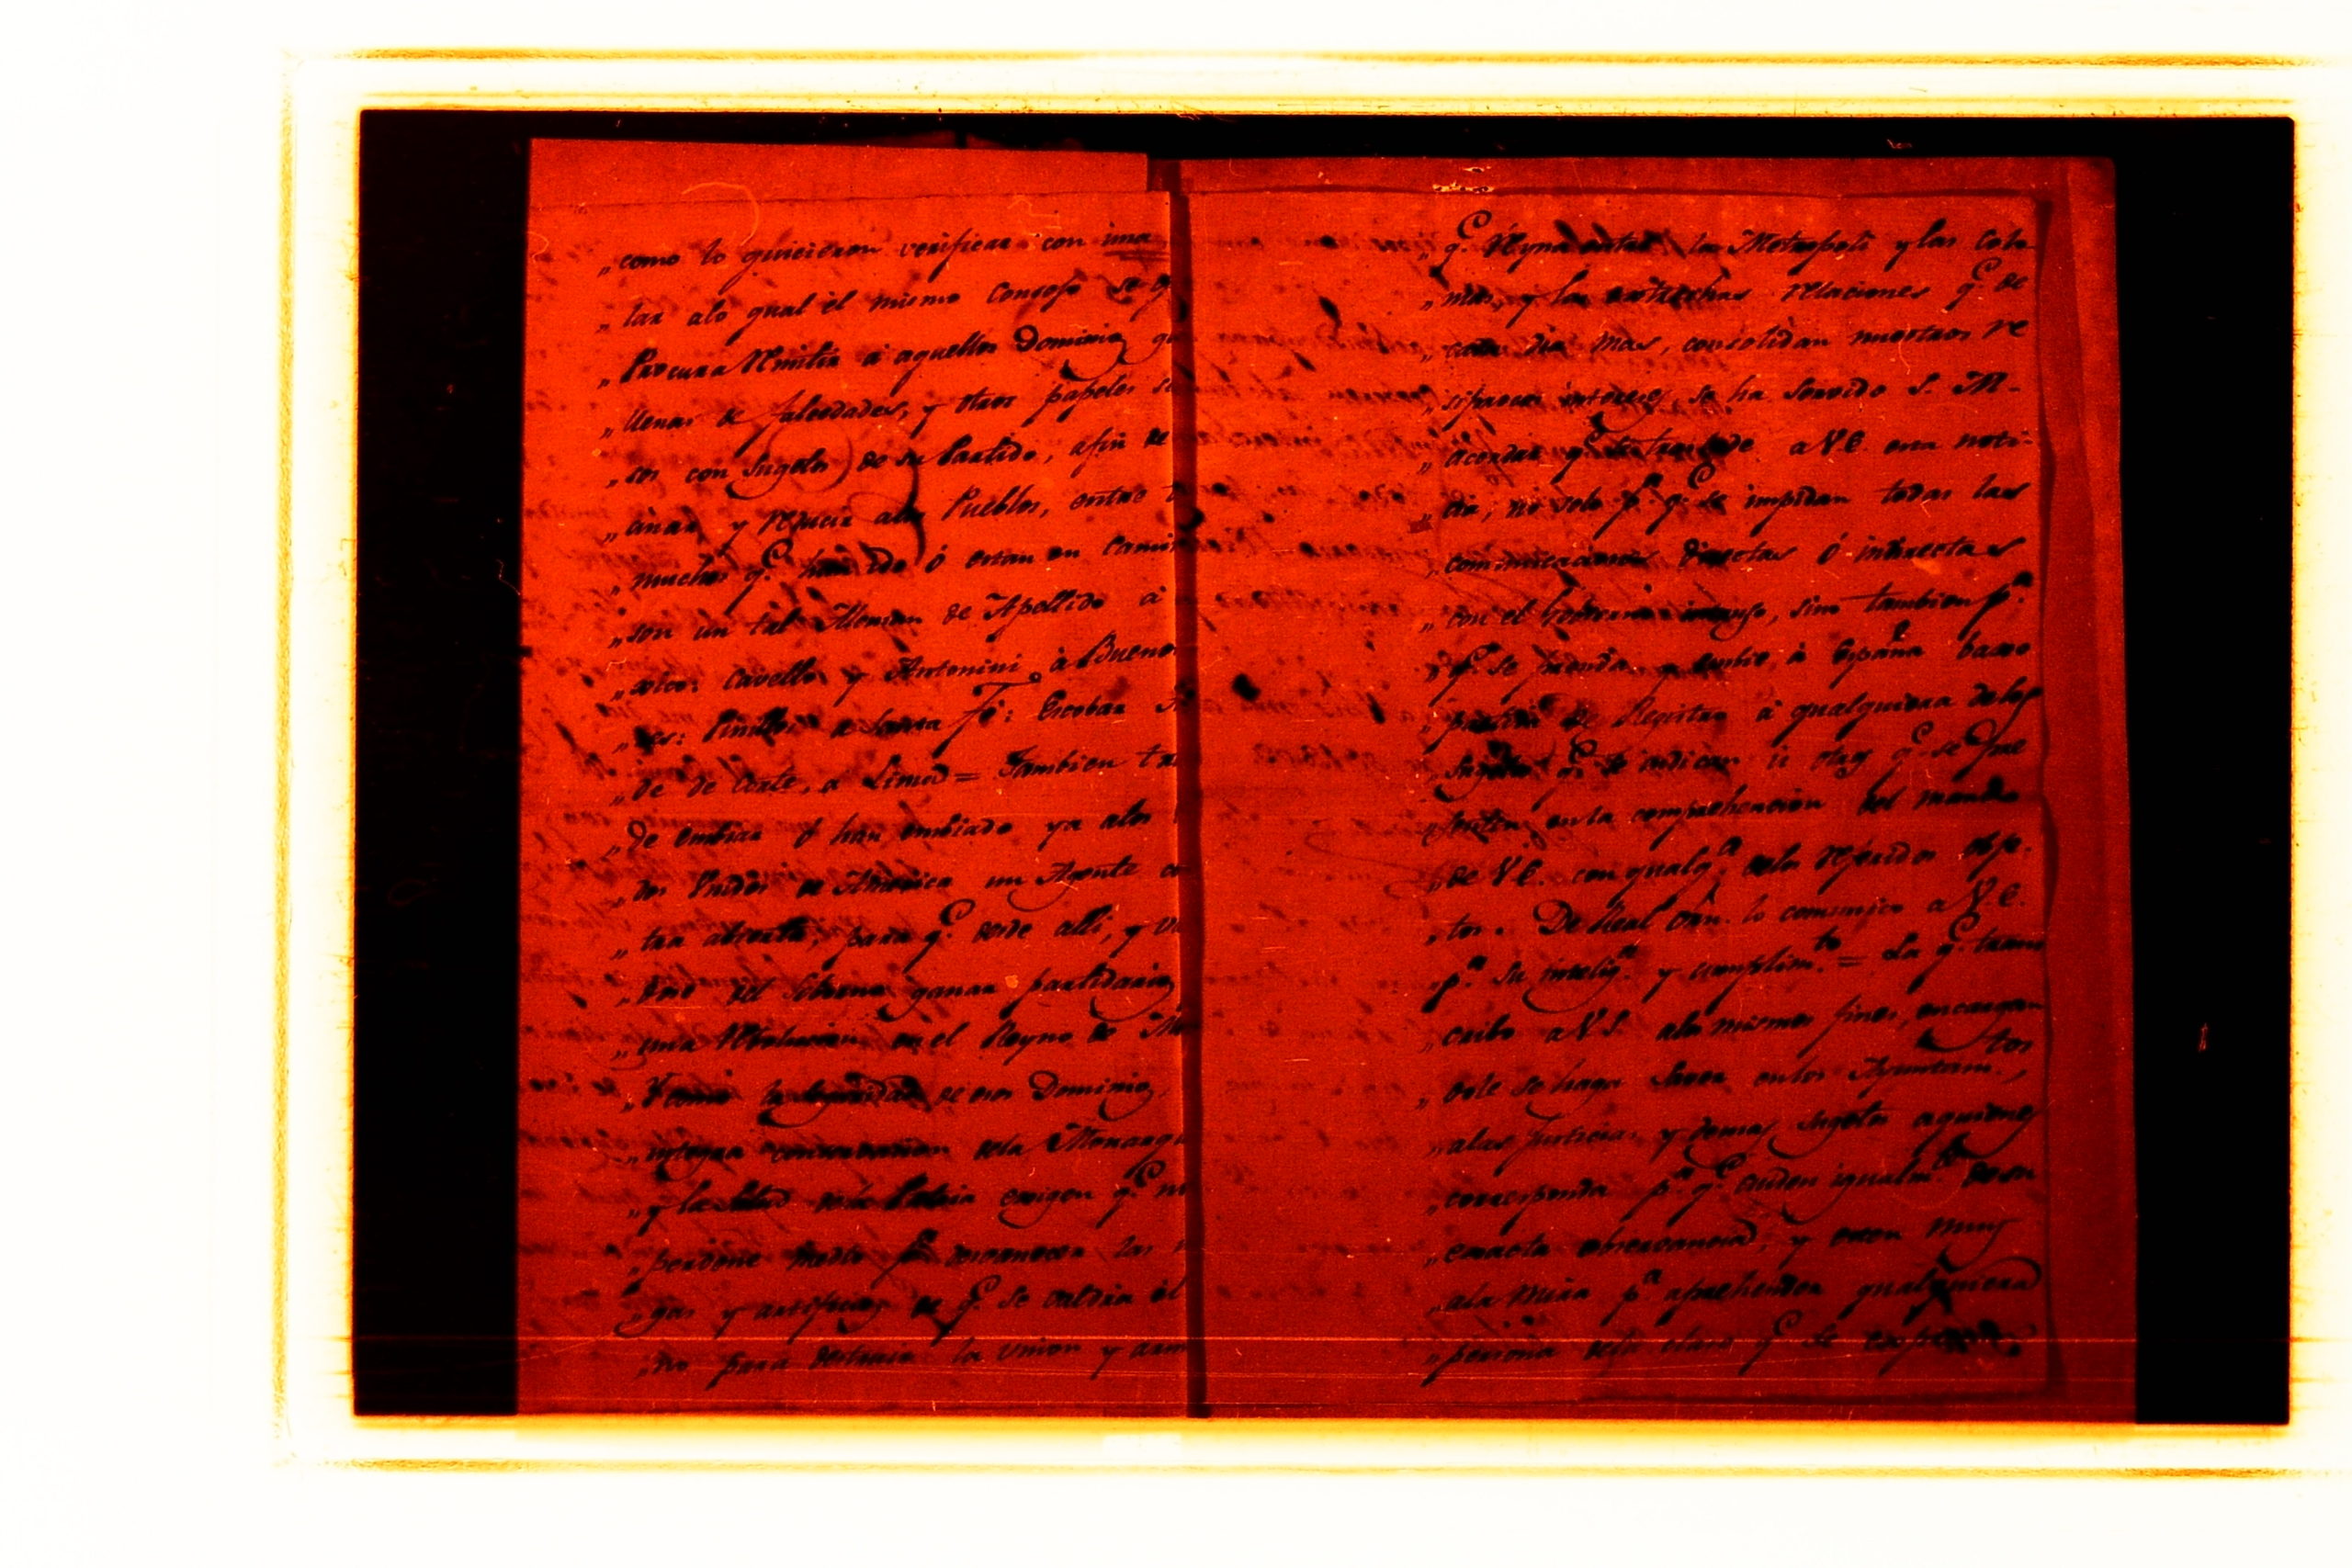 „como lo quicieron verificar con una
„lar alo qual el mismo Consejo se q
„Procura Remitir á aquellos Dominios qu
„llenas de falcedades, y otros papeles se
„sos con Sugetos de su Partido, afin de
„cinar y reducir alos Pueblos, entre
„muchos q.e han ido ó estan en camin
„son un tal Aleman de Apellido à
„xico: Cavello y Antonini à Bueno
„res: Pinillos a Santa Fé: Escobar
„de de Corte, a Lima = Tambien tra
„de embiar ó han embiado ya alos
„dos Unidos de America un Agente co
„tra abierta, para q.e desde alli, y
„ganar partidarios
„una Revolucion en el Reyno de
„Y como la seguridad de esos Dominios,
„integra conservacion dela Monarqu
„y la salud dela Patria exigen q.e no
„perdone medio p.a desvanecer las
„gas y artificios de q.e se valdra el
„no para destruir la union y arm
„q.e Reyna entre la Metropoli y las Colo
„nias, y las estrechas relaciones q.e de
„cada dia mas, consolidan nuestros re
„ciprocos intereses, se ha servido S. M.
„acordar q.e se traslade a V.E. esta noti-
„cia, no solo p.a q.e se impidan todas las
„comunicaciones directas ó indirectas
„con el Gobierno intruso, sino tambien p.a
„q.e se prenda y embie, à España baxo
„partida de Registro à qualquiera delos
„Sugetos q.e se indican ù otros q.e se pre
„senten en la comprehencion del mando
„de V.E. con qualq.a delos referidos obje-
„tos. De Real Orn. lo comunico a V.E.
p.a su intelig.a y cumplim.to = La q.e trans
„cribo a V.S. alos mismos fines, encargan
„dole se haga saver en los Ayuntam.tos,
„alas Justicias, y demas Sugetos aquienes
„corresponda p.a q.e cuiden igualm.te de su
„exacta observancia, y esten muy
„ala mira p.a aprehender qualquiera
„persona dela clase q.e se expresa